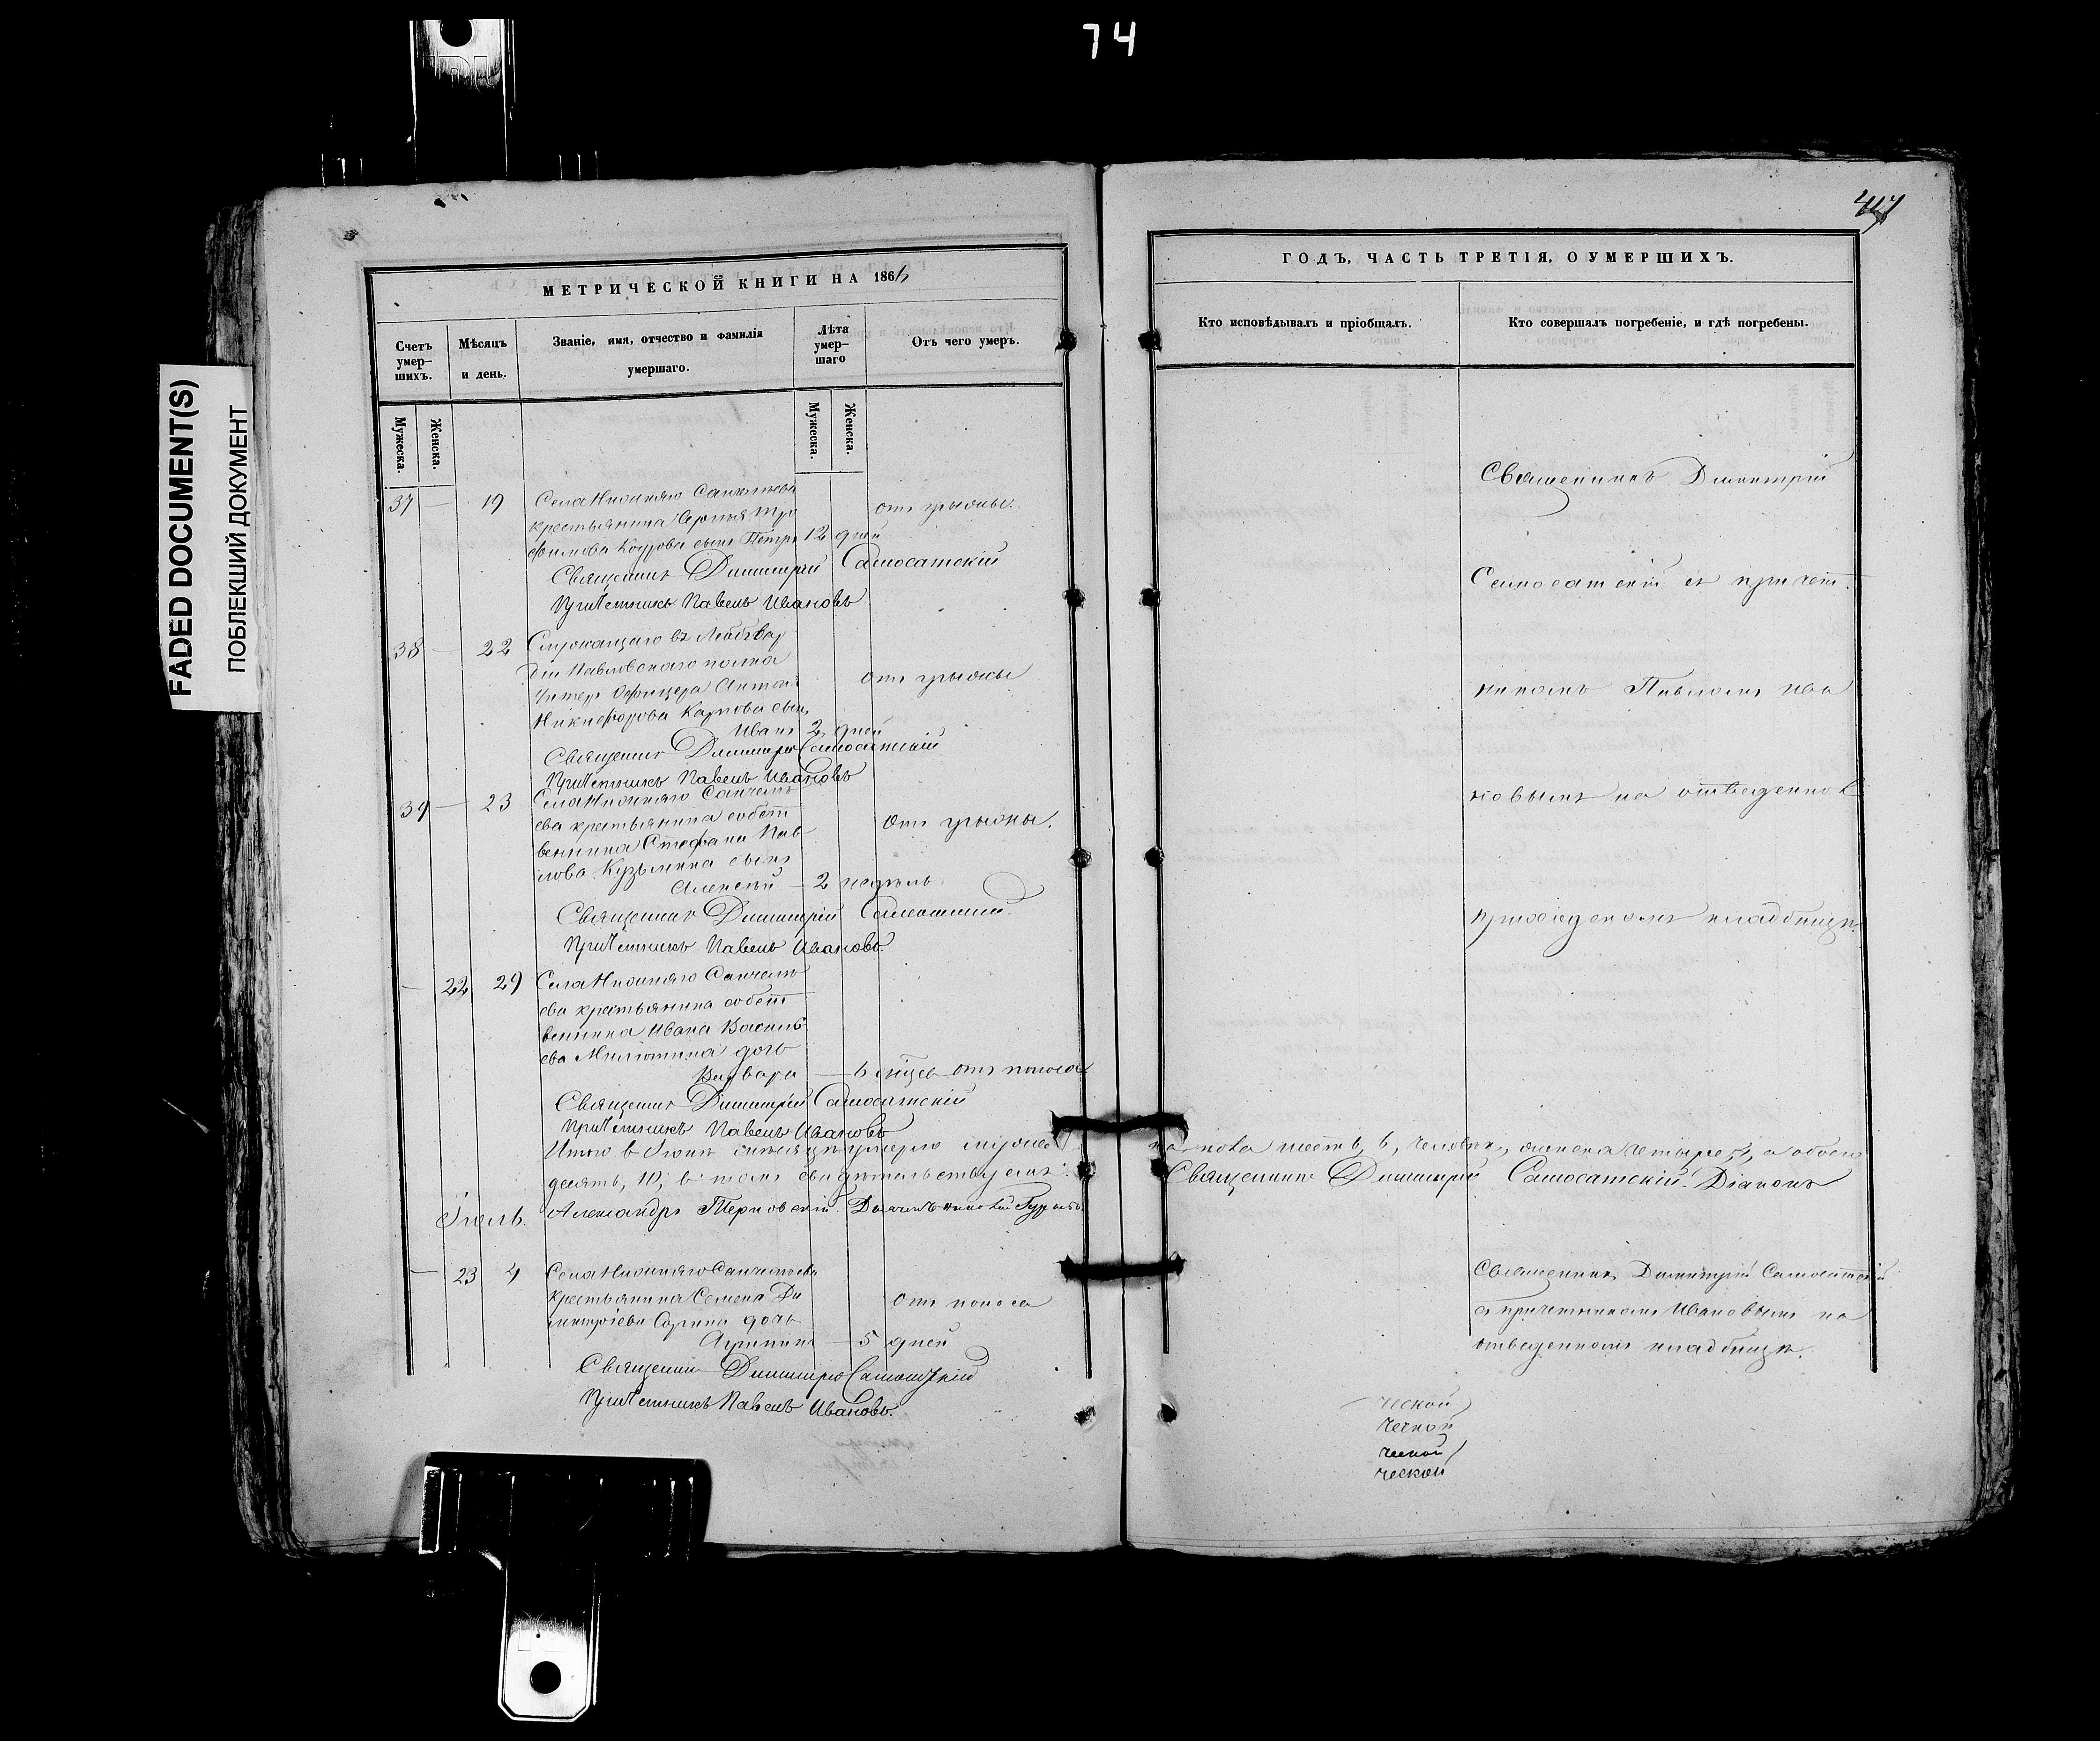 74
FADED DOCUMENT(S)
ПОБЛЕКШИЙ ДОКУМЕНТ
МЕТРИЧЕСКОЙ КНИГИ НА 186
Счетъ умер-шихъ.
Мѣсяцъ и день.
Званіе, имя, отчество и фамилія умершаго.
Лѣта умер-шаго
Отъ чего умеръ.
Мужеска.
Женска.
Мужеска.
Женска.
37 — 19 Села Нижняго
крестьянина Сергія Тро
фимова сынъ Петръ 12 дней
отъ грыжи.
Священникъ Димитрій Самосатскій
Причетникъ Павелъ Ивановъ
38 — 22 Служащаго въ Лейбгвар
діи Павловскаго полка
Унтеръ Офицера Антона
Никифорова Карпова сынъ
Иванъ 2 дней
отъ грыжи
Священникъ Димитрій Самосатскій
Причетникъ Павелъ Ивановъ
39 — 23 Села Нижняго
ева крестьянина собст
венника Стефана Пав
лова Кузьмина сынъ
Алексѣй — 2 недѣль
отъ грыжи.
Священникъ Димитрій Самосатскій.
Причетникъ Павелъ Ивановъ.
— 22 29 Села Нижняго
ева крестьянина собст
венника Ивана Василь
ева Милютина дочь
Варвара — 6 отъ поноса
Священникъ Димитрій Самосатскій
Причетникъ Павелъ Ивановъ
Итого въ Іюнѣ мѣсяцѣ умерло мужеска
десять, 10, въ томъ свидѣтельствуемъ:
Александръ Терновскій.
Іюль.
— 23 4 Села Нижняго
Крестьянина Семена Ди
митріева дочь
— 5 дней
отъ поноса
Священникъ Димитрій Самосатскій
Причетникъ Павелъ Ивановъ.
ГОДЪ, ЧАСТЬ ТРЕТІЯ, О УМЕРШИХЪ.
Кто исповѣдывалъ и пріобщалъ.
Кто совершалъ погребеніе, и гдѣ погребены.
Священникъ Димитрій
Самосатскій съ причет-
никомъ Павломъ Ива
новымъ на отведенномъ
приходскомъ кладбищѣ.
пола шесть, 6, человѣкъ, женска четыре, 4, а обоего
Священникъ Димитрій Самосатскій. Діаконъ
Священникъ Димитрій Самосатскій
съ причетникомъ Ивановымъ на
отведенномъ кладбищѣ.
ческой
ческой
ческой
ческой